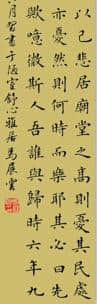 以己悲居廟堂之高則憂其民處
亦憂然則何時而樂耶其必曰先
歟噫微斯人吾誰與歸時六年九
月習書于陋室舒心雅居馬展雲